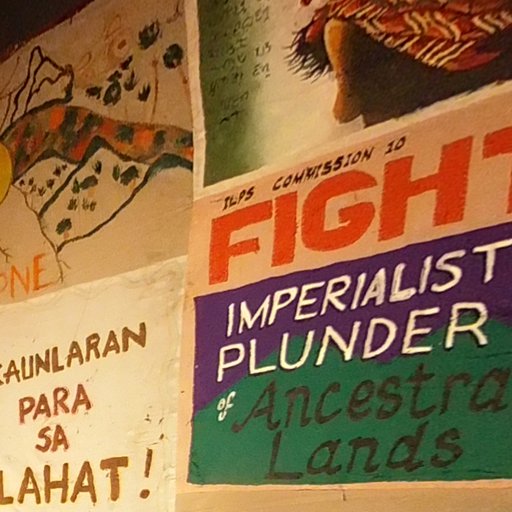 ONE
KAUNLARAN
PARA
SA
LAHAT!
ILPS COMMISSION 10
FIGHT
IMPERIALIST
PLUNDER
of Ancestral
Lands